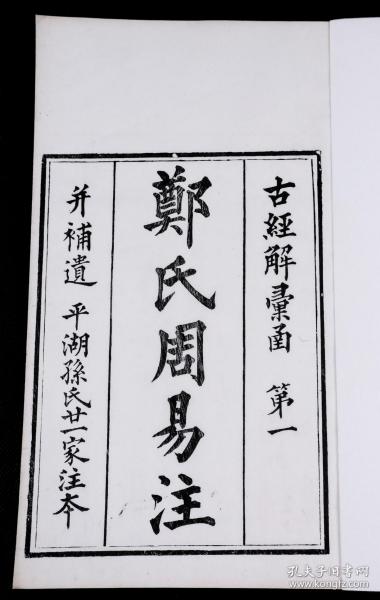 古經解彙函 第一
鄭氏周易注
并補遺 平湖孫氏廿一家注本
孔夫子旧书网